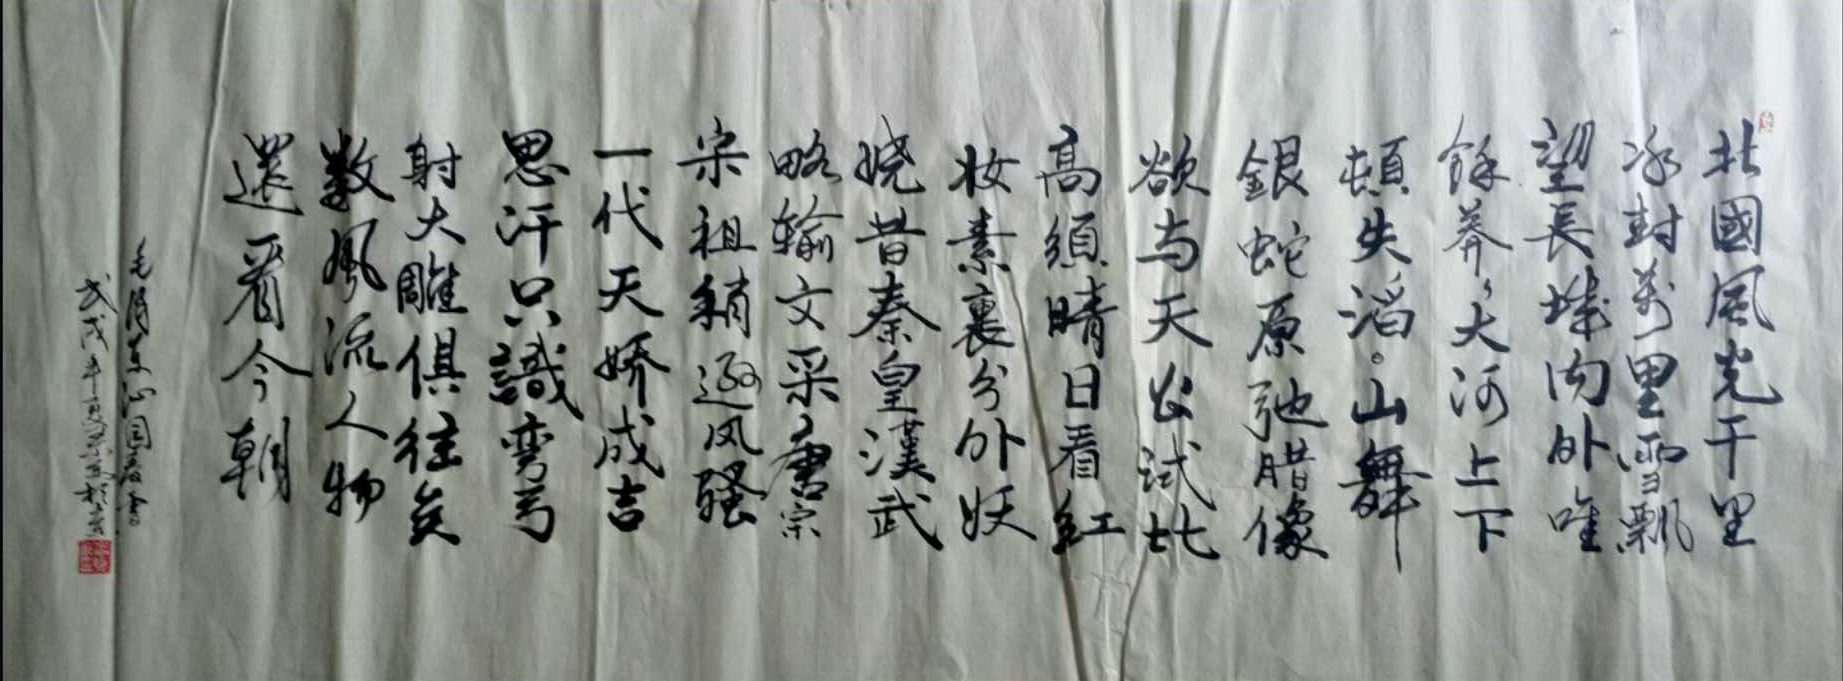 北國風光千里
冰封萬里雪飄
望長城內外唯
餘莽々大河上下
頓失滔。山舞
銀蛇原弛腊像
欲与天公试比
高須晴日看红
妆素裹分外妖
娆昔秦皇漢武
略输文采唐宗
宋祖稍逊风骚
一代天娇成吉
思汗只識弯弓
射大雕俱往矣
数風流人物
還看今朝
毛泽东沁园春雪
戊戌年